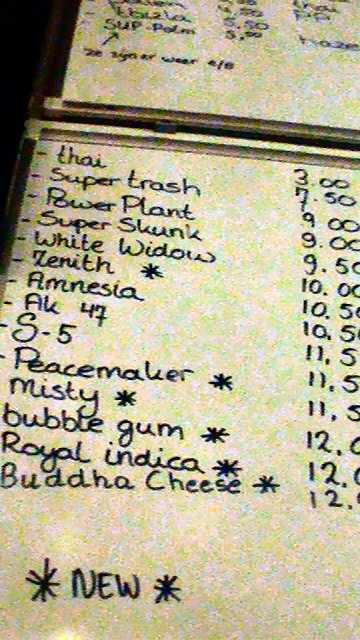 Ibizia 5.50
SUP. Palm 5,00
ze zijn er weer e/o
- thai 3.00
- Super trash 7.50
- Power Plant 9.00
- Super Skunk 9.00
- White Widow 9.50
- Zenith * 10.00
- Amnesia 10.50
- AK 47 10.50
- S-5 11.5
- Peacemaker * 11.5
Misty * 11,5
bubble gum * 12.0
Royal indica * 12.0
Buddha Cheese * 12.
* NEW *